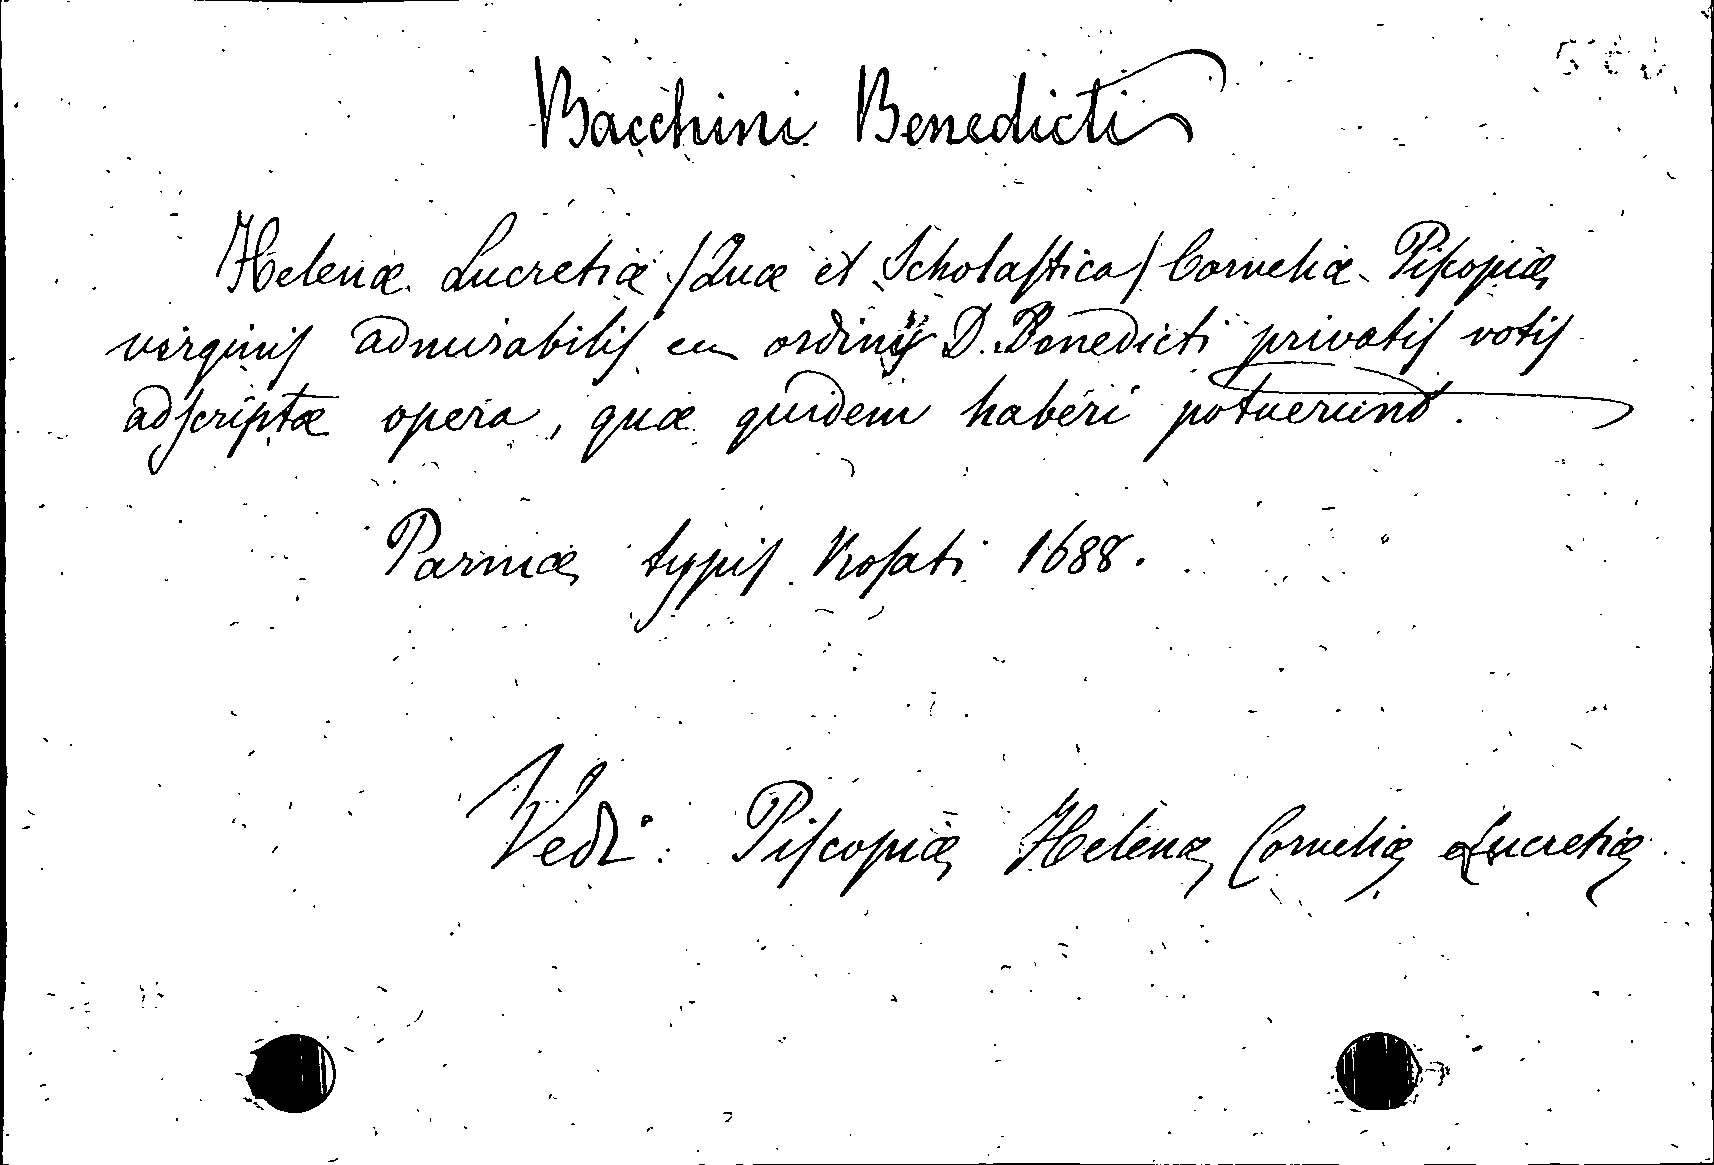 Bacchini Benedicti
Helenæ Lucretiæ /Quæ et Scholaſtica/ Corneliæ Piſcopiæ
virginiſ admirabiliſ en ordiniſ D. Benedicti privatiſ votiſ
adſcriptæ opera, quæ quidem haberi potuerunt.
Parmæ typiſ Roſati 1688.
Vedi: Piſcopiæ Helenæ Corneliæ Lucretiæ